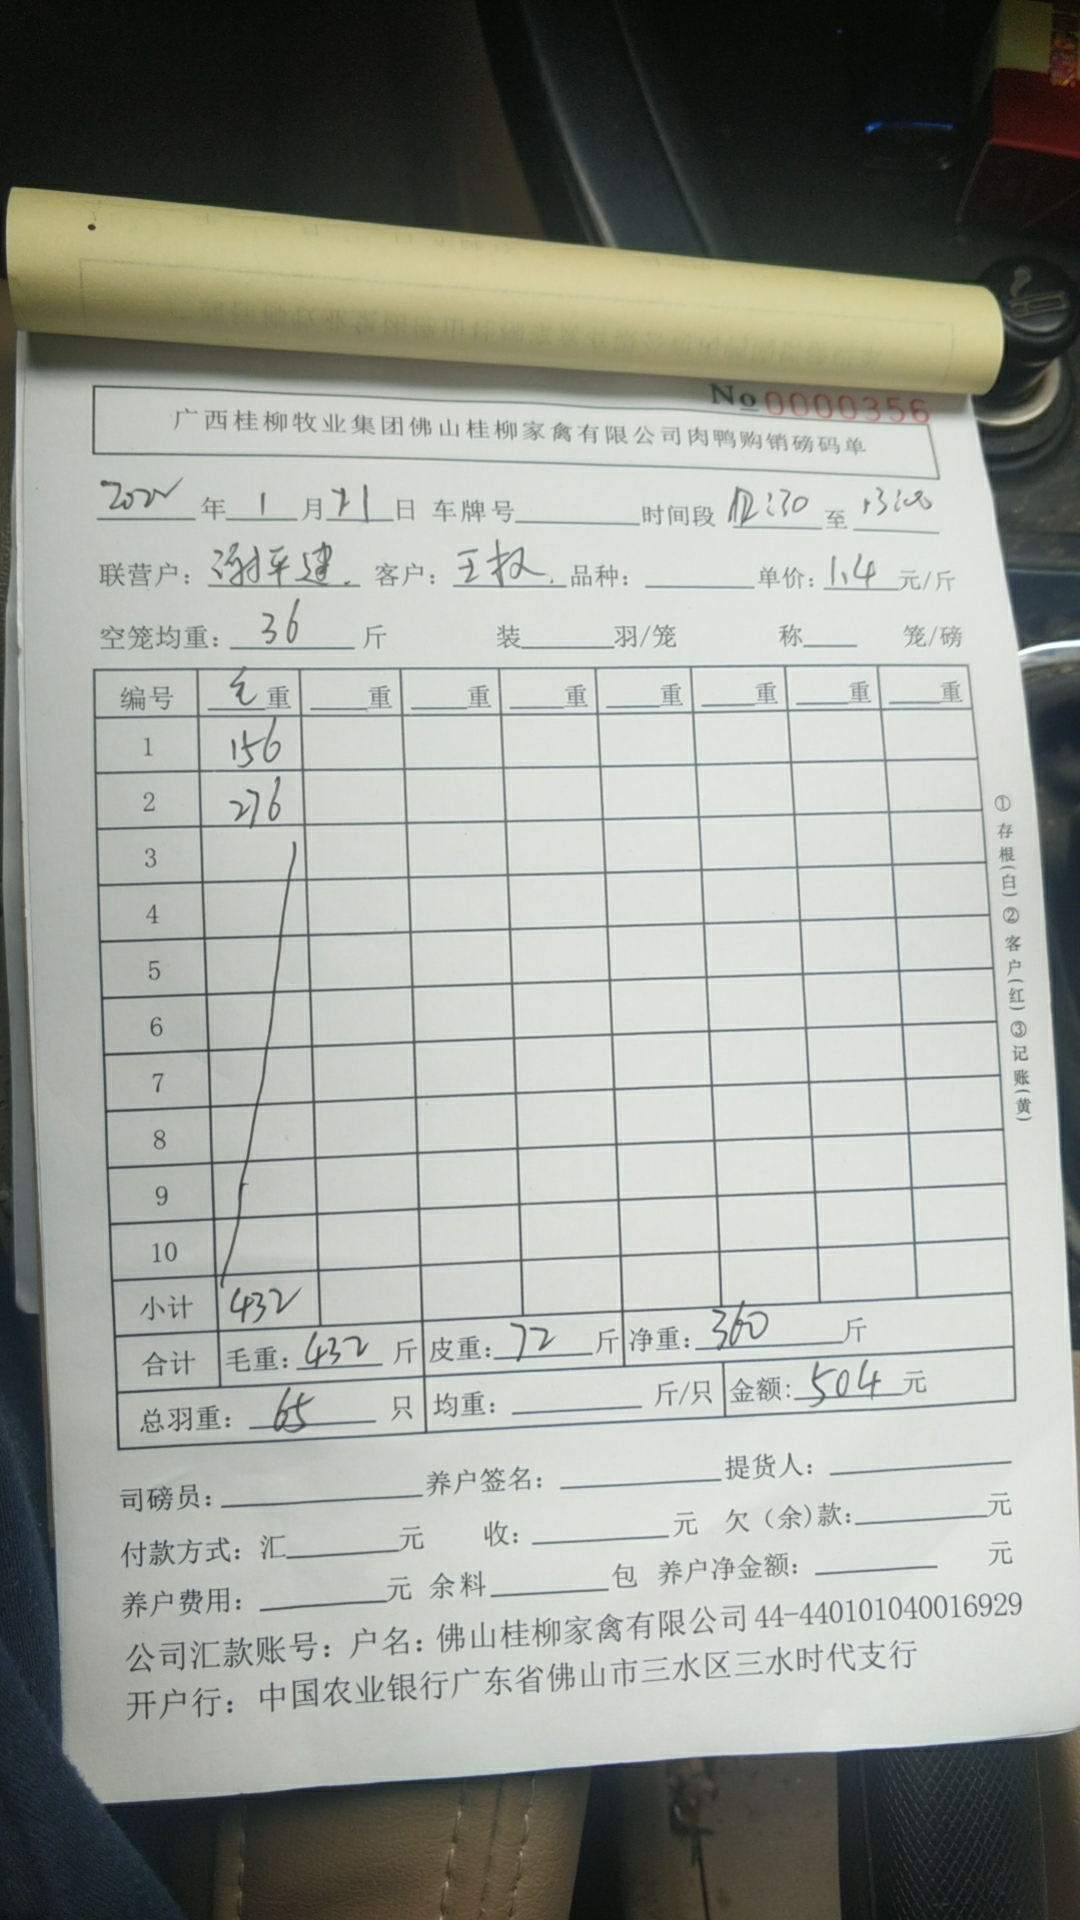 No 0000356
广西桂柳牧业集团佛山桂柳家禽有限公司肉鸭购销磅码单
2022年1月11日 车牌号 时间段 12:30 至 13:00
联营户：谢坪建. 客户：王权. 品种： 单价：1.4元/斤
空笼均重：36 斤 装 羽/笼 称 笼/磅
编号 毛重 重 重 重 重 重 重 重
1 156
2 276
3
4
5
6
7
8
9
10
小计 432
合计 毛重：432 斤 皮重：72 斤 净重：360 斤
总羽重：65 只 均重： 斤/只 金额：504 元
司磅员： 养户签名： 提货人：
付款方式：汇 元 收： 元 欠（余)款： 元
养户费用： 元 余料 包 养户净金额： 元
公司汇款账号：户名：佛山桂柳家禽有限公司 44-440101040016929
开户行：中国农业银行广东省佛山市三水区三水时代支行
①存根(白)②客户(红)③记账(黄)